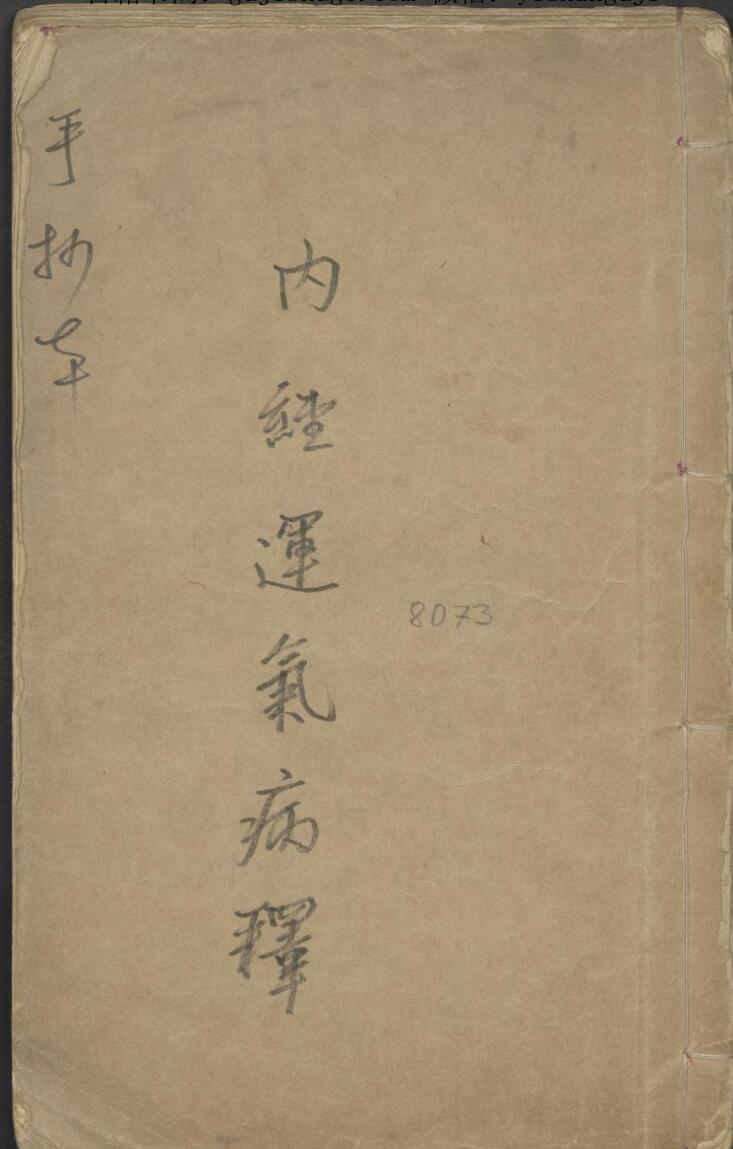 內經運氣病釋
手抄本
8073